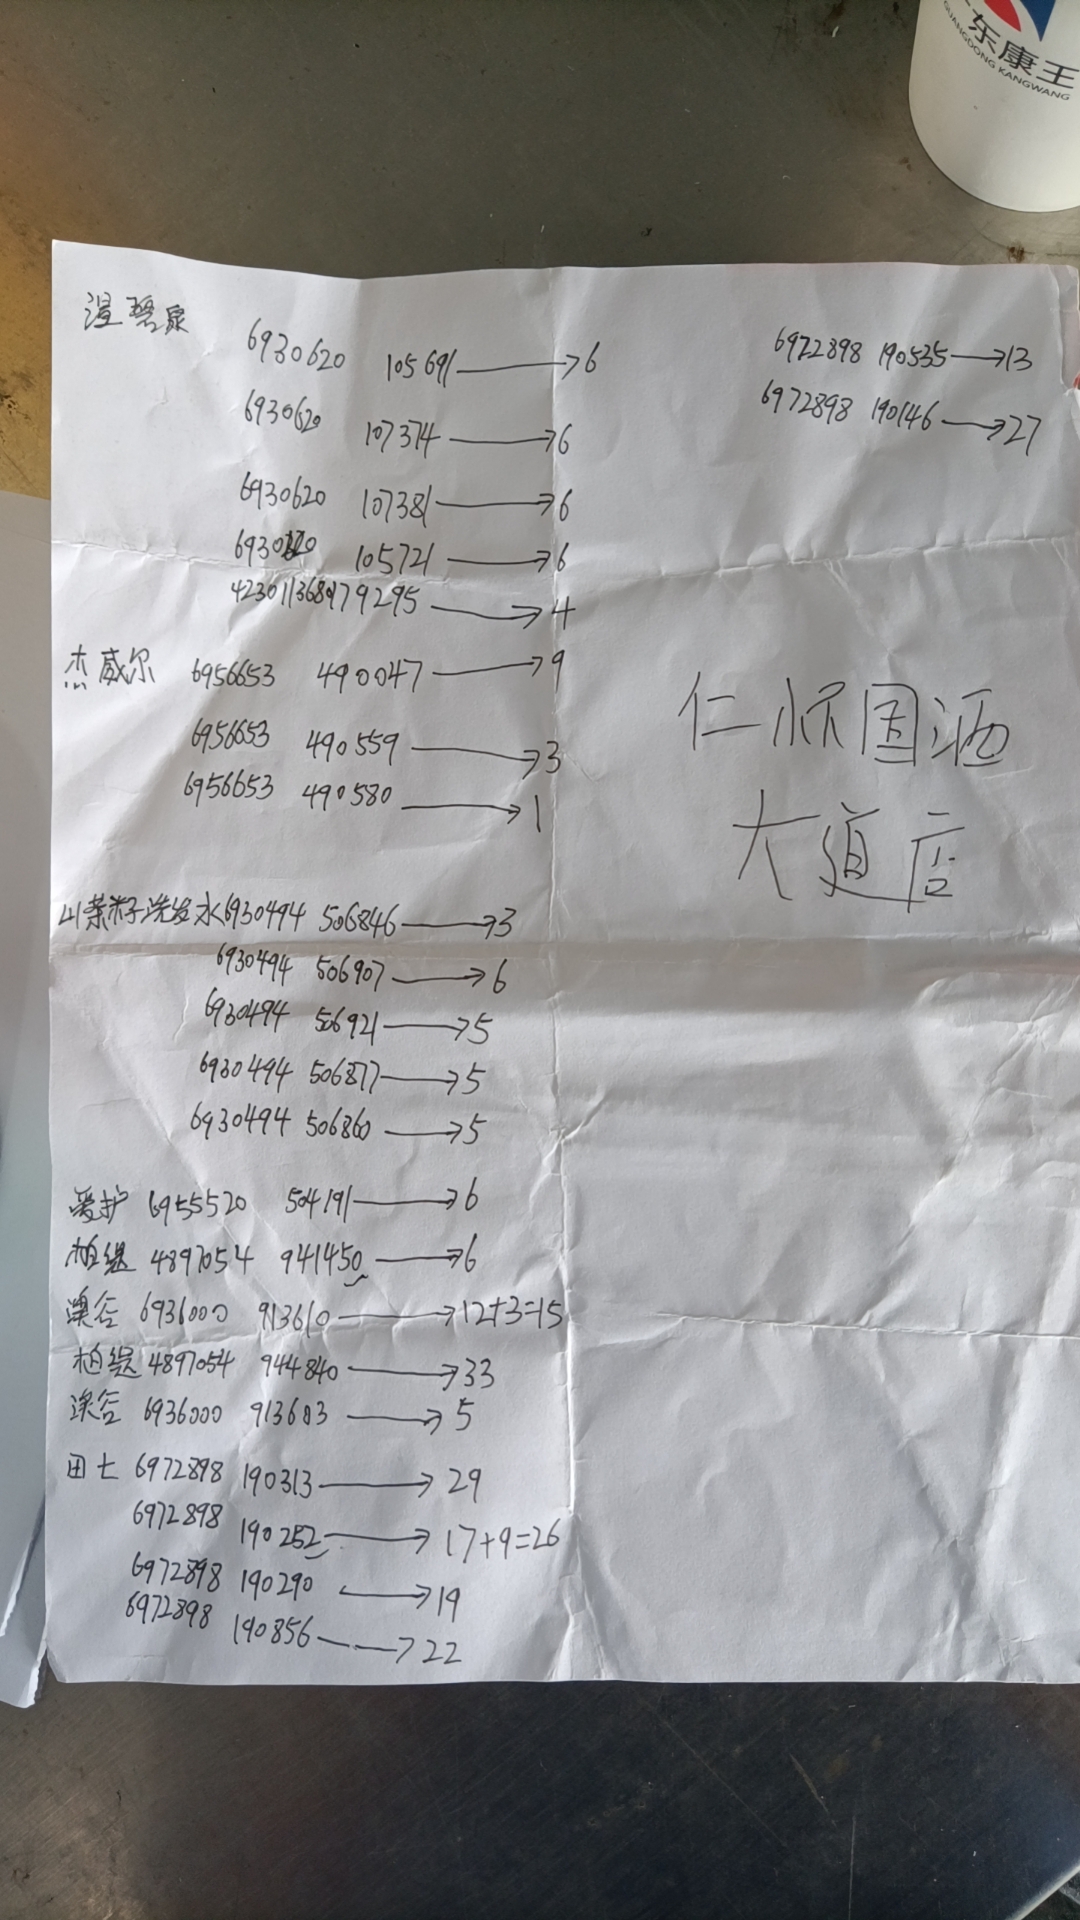 东康王
GUANGDONG KANGWANG
湿碧泉
6930620 105691→6
6930620 107374→6
6930620 107381→6
6930620 105721→6
4230113680179295→4
杰威尔 6956653 490047→9
6956653 490559→3
6956653 490580→1
山茶籽洗发水6930494 506846→3
6930494 506907→6
6930494 506921→5
6930494 506877→5
6930494 506860→5
爱护 6955520 504191→6
柏缇 4897054 941450→6
澳谷 6936000 913610→12+3=15
柏缇 4897054 944840→33
澳谷 6936000 913603→5
田七 6972898 190313→29
6972898 190252→17+9=26
6972898 190290→19
6972898 190856→22
6972898 190535→13
6972898 190146→27
仁怀国酒
大道店